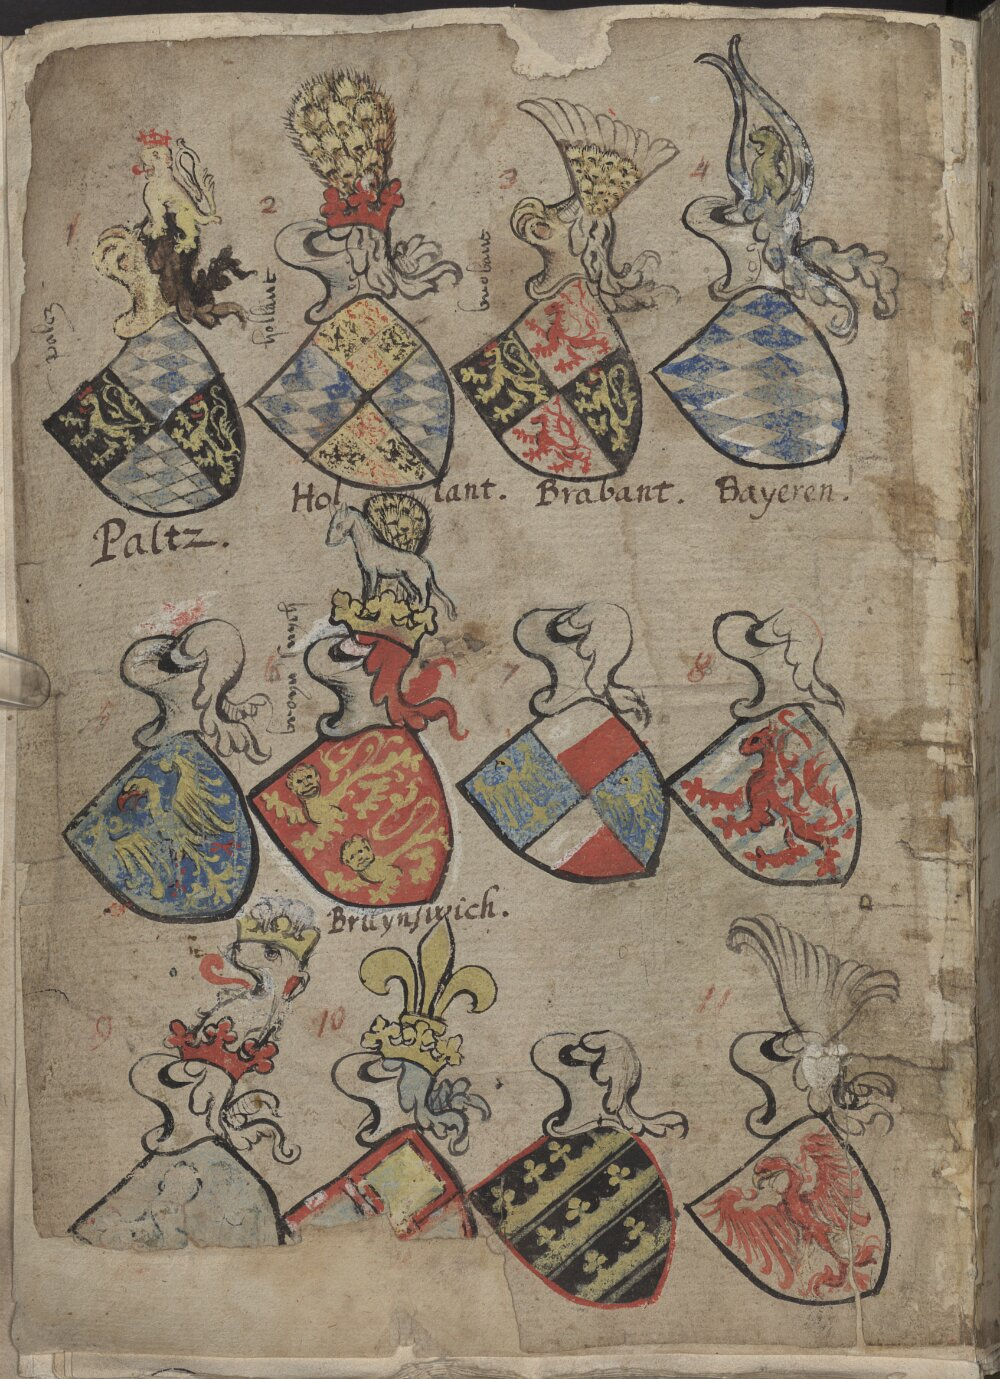 1
2
3
4
paltz
hollant
brabant
Hollant. Brabant. Bayeren.
Paltz.
5
6
7
8
Bruynswich.
9
10
11